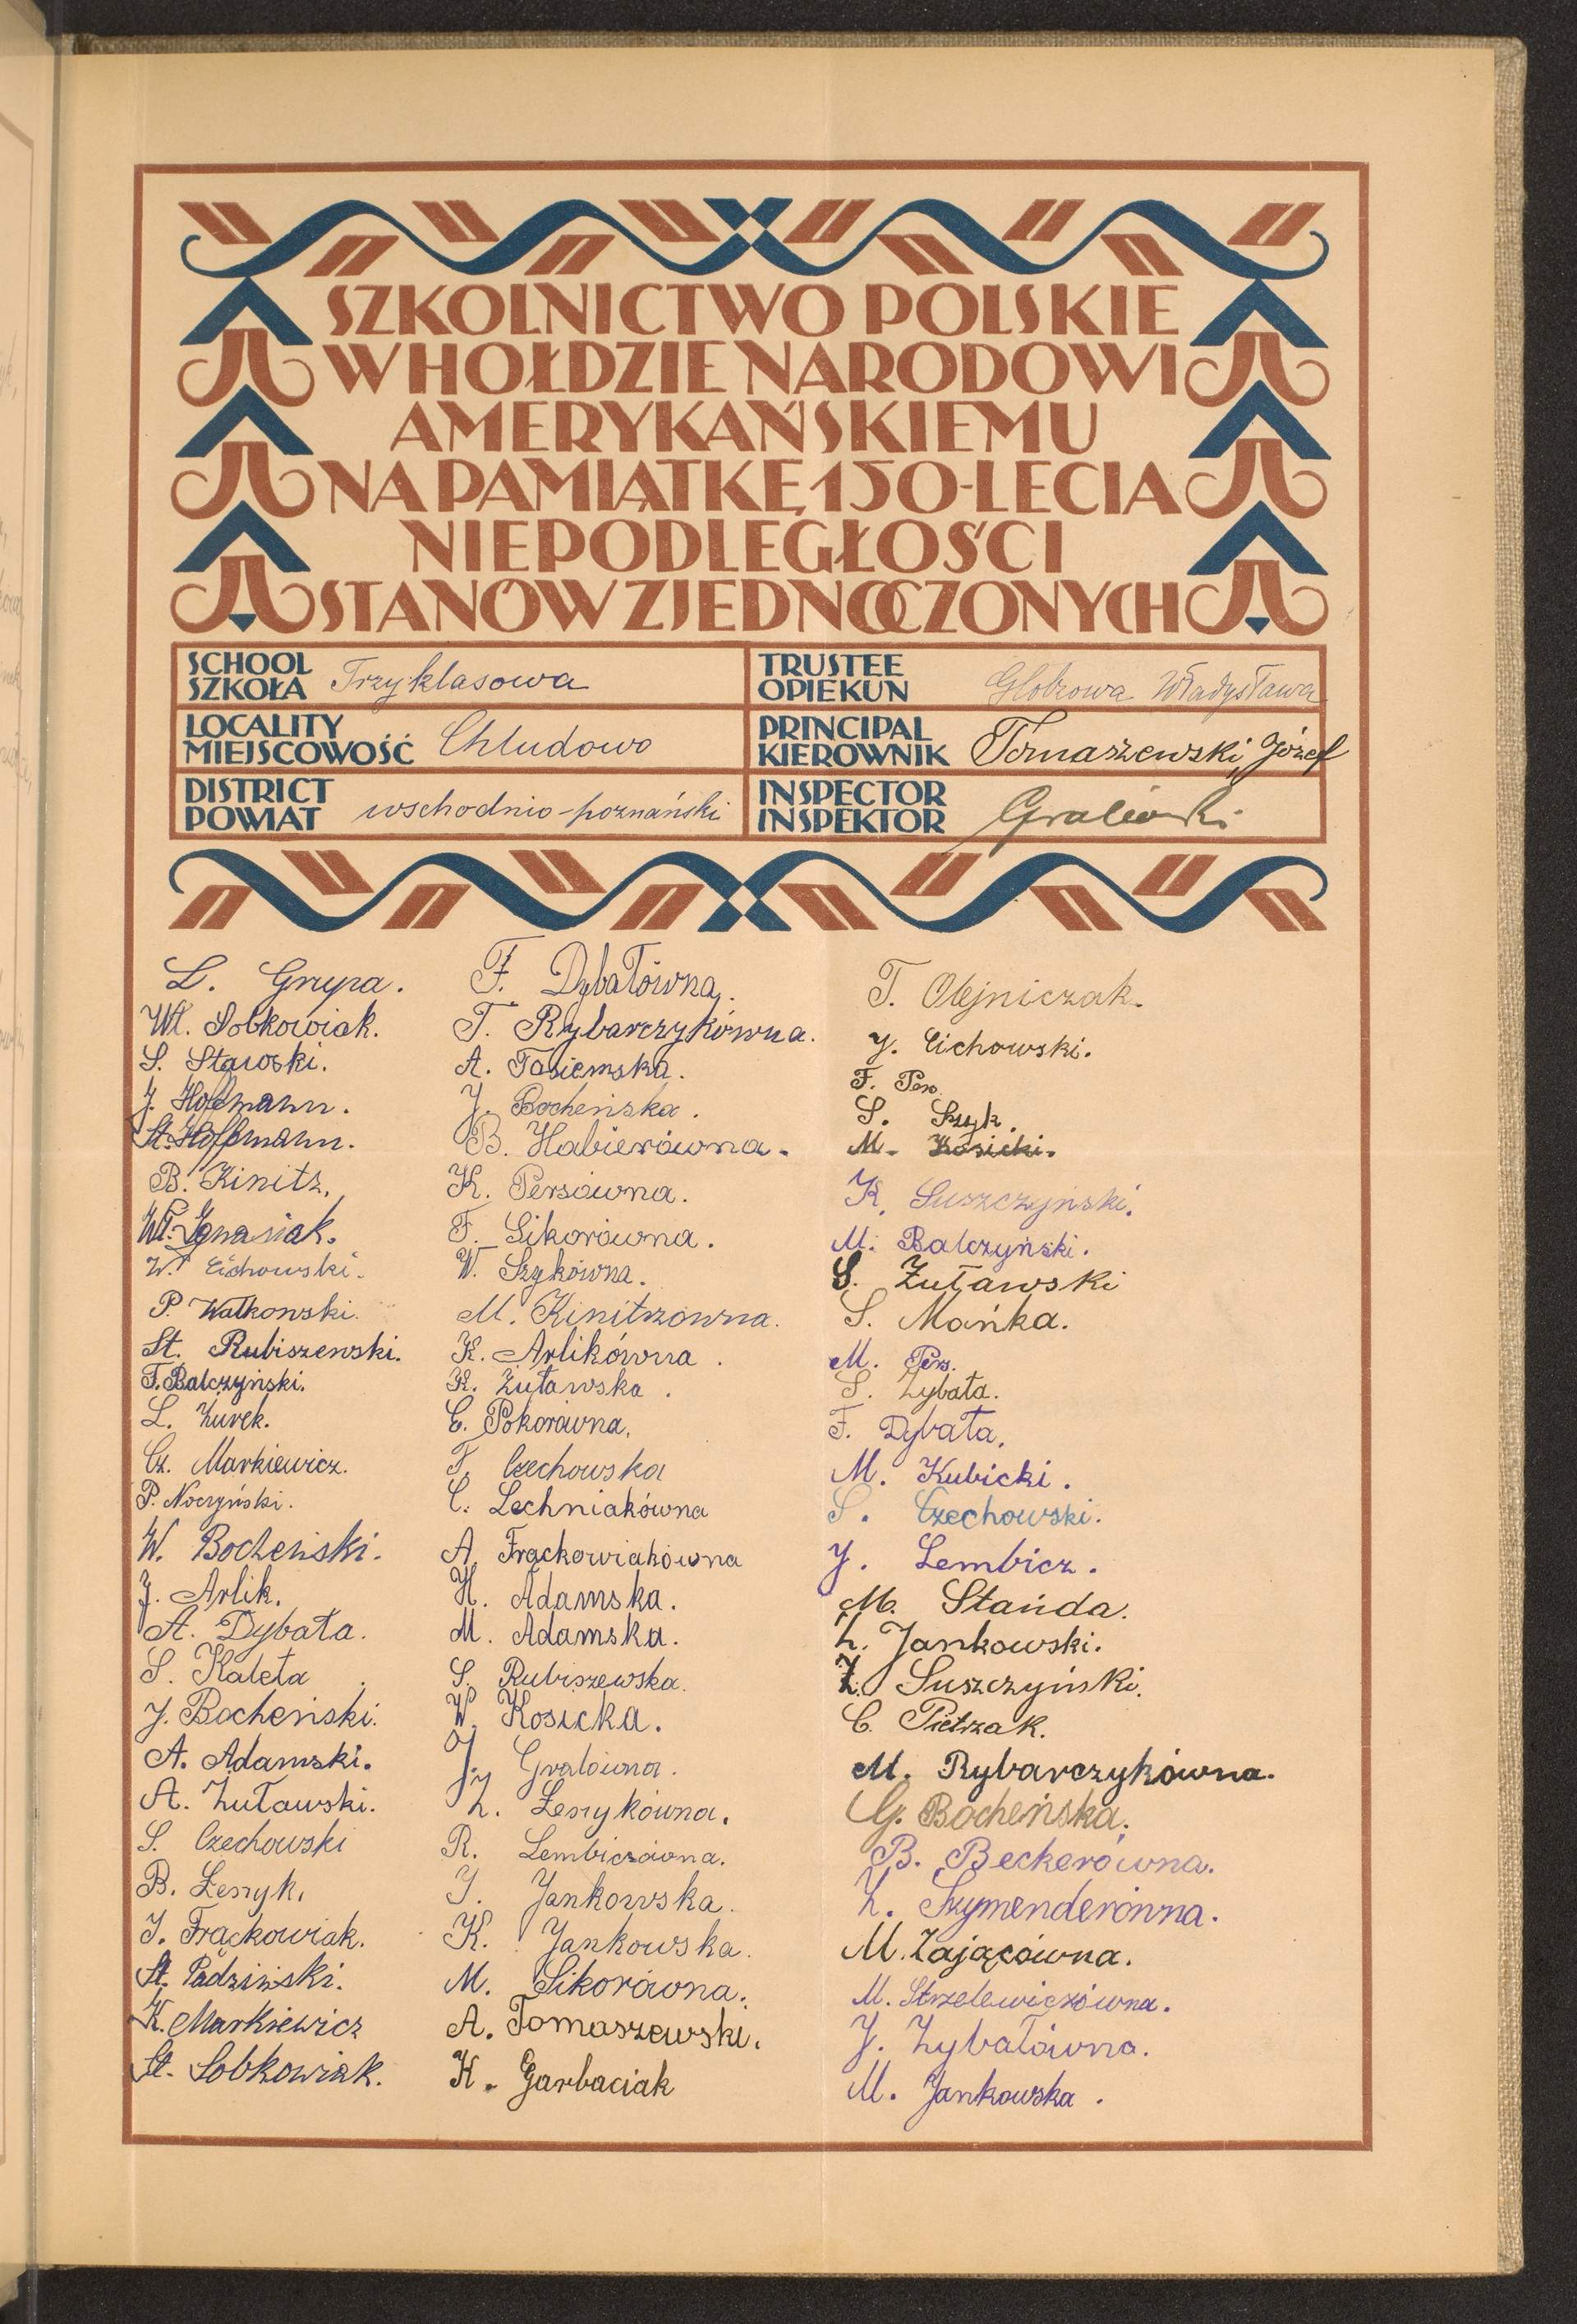 SZKOLNICTWO POLSKIE
W HOŁDZIE NARODOWI
AMERYKAŃSKIEMU
NA PAMIĄTKĘ 150-LECIA
NIEPODLEGŁOŚCI
STANÓW ZJEDNOCZONYCH
SCHOOL
SZKOŁA Trzyklasowa
TRUSTEE
OPIEKUN Władysława
LOCALITY
MIEJSCOWOŚĆ Chludowo
PRINCIPAL
KIEROWNIK Tomaszewski, Józef
DISTRICT
POWIAT wschodnio-poznański
INSPECTOR
INSPEKTOR
L. Grupa.
Wł. Sobkowiak.
S. Stawski.
J. Hoffmann.
St. Hoffmann.
B. Kinitz.
Wł. Ignasiak.
W. Cichowski.
P. Watkowski.
St. Rubiszewski.
F. Balczyński.
L. Żurek.
Cz. Markiewicz.
P. Noczyński.
W. Bocheński.
J. Arlik.
A. Dybała.
S. Kaleta.
J. Bocheński.
A. Adamski.
A. Żuławski.
S. Czechowski
B. Leszyk.
J. Frąckowiak.
St. Padziński.
K. Markiewicz
St. Sobkowiak.
F. Dybałówna.
T. Rybarczykówna.
A. Tasiemska.
J. Bocheńska.
B. Habierówna.
K. Persówna.
F. Sikorówna.
W. Szykówna.
M. Kinitzówna.
K. Arlikówna.
K. Żuławska.
C. Pokorówna.
T. Czechowska
C. Lechniakówna
A. Frąckowiakówna
H. Adamska.
M. Adamska.
S. Rubiszewska.
W. Kosicka.
J. Gralówna.
L. Leszykówna.
R. Lembiczówna.
J. Jankowska.
K. Jankowska.
M. Sikorówna.
A. Tomaszewski.
K. Garbaciak
T. Olejniczak.
J. Cichowski.
F. Pers.
S. Szyk.
M. Kosicki.
K. Suszczyński.
M. Balczyński.
S. Żuławski
S. Mańka.
M. Pers.
S. Zybała.
F. Dybała.
M. Kubicki.
S. Czechowski.
J. Lembicz.
M. Stańda.
L. Jankowski.
Z. Suszczyński.
C. Pietrzak.
M. Rybarczykówna.
G. Bocheńska.
B. Beckerówna.
L. Szymenderówna.
M. Zającówna.
M. Strzelewiczówna.
J. Zybałówna.
M. Jankowska.